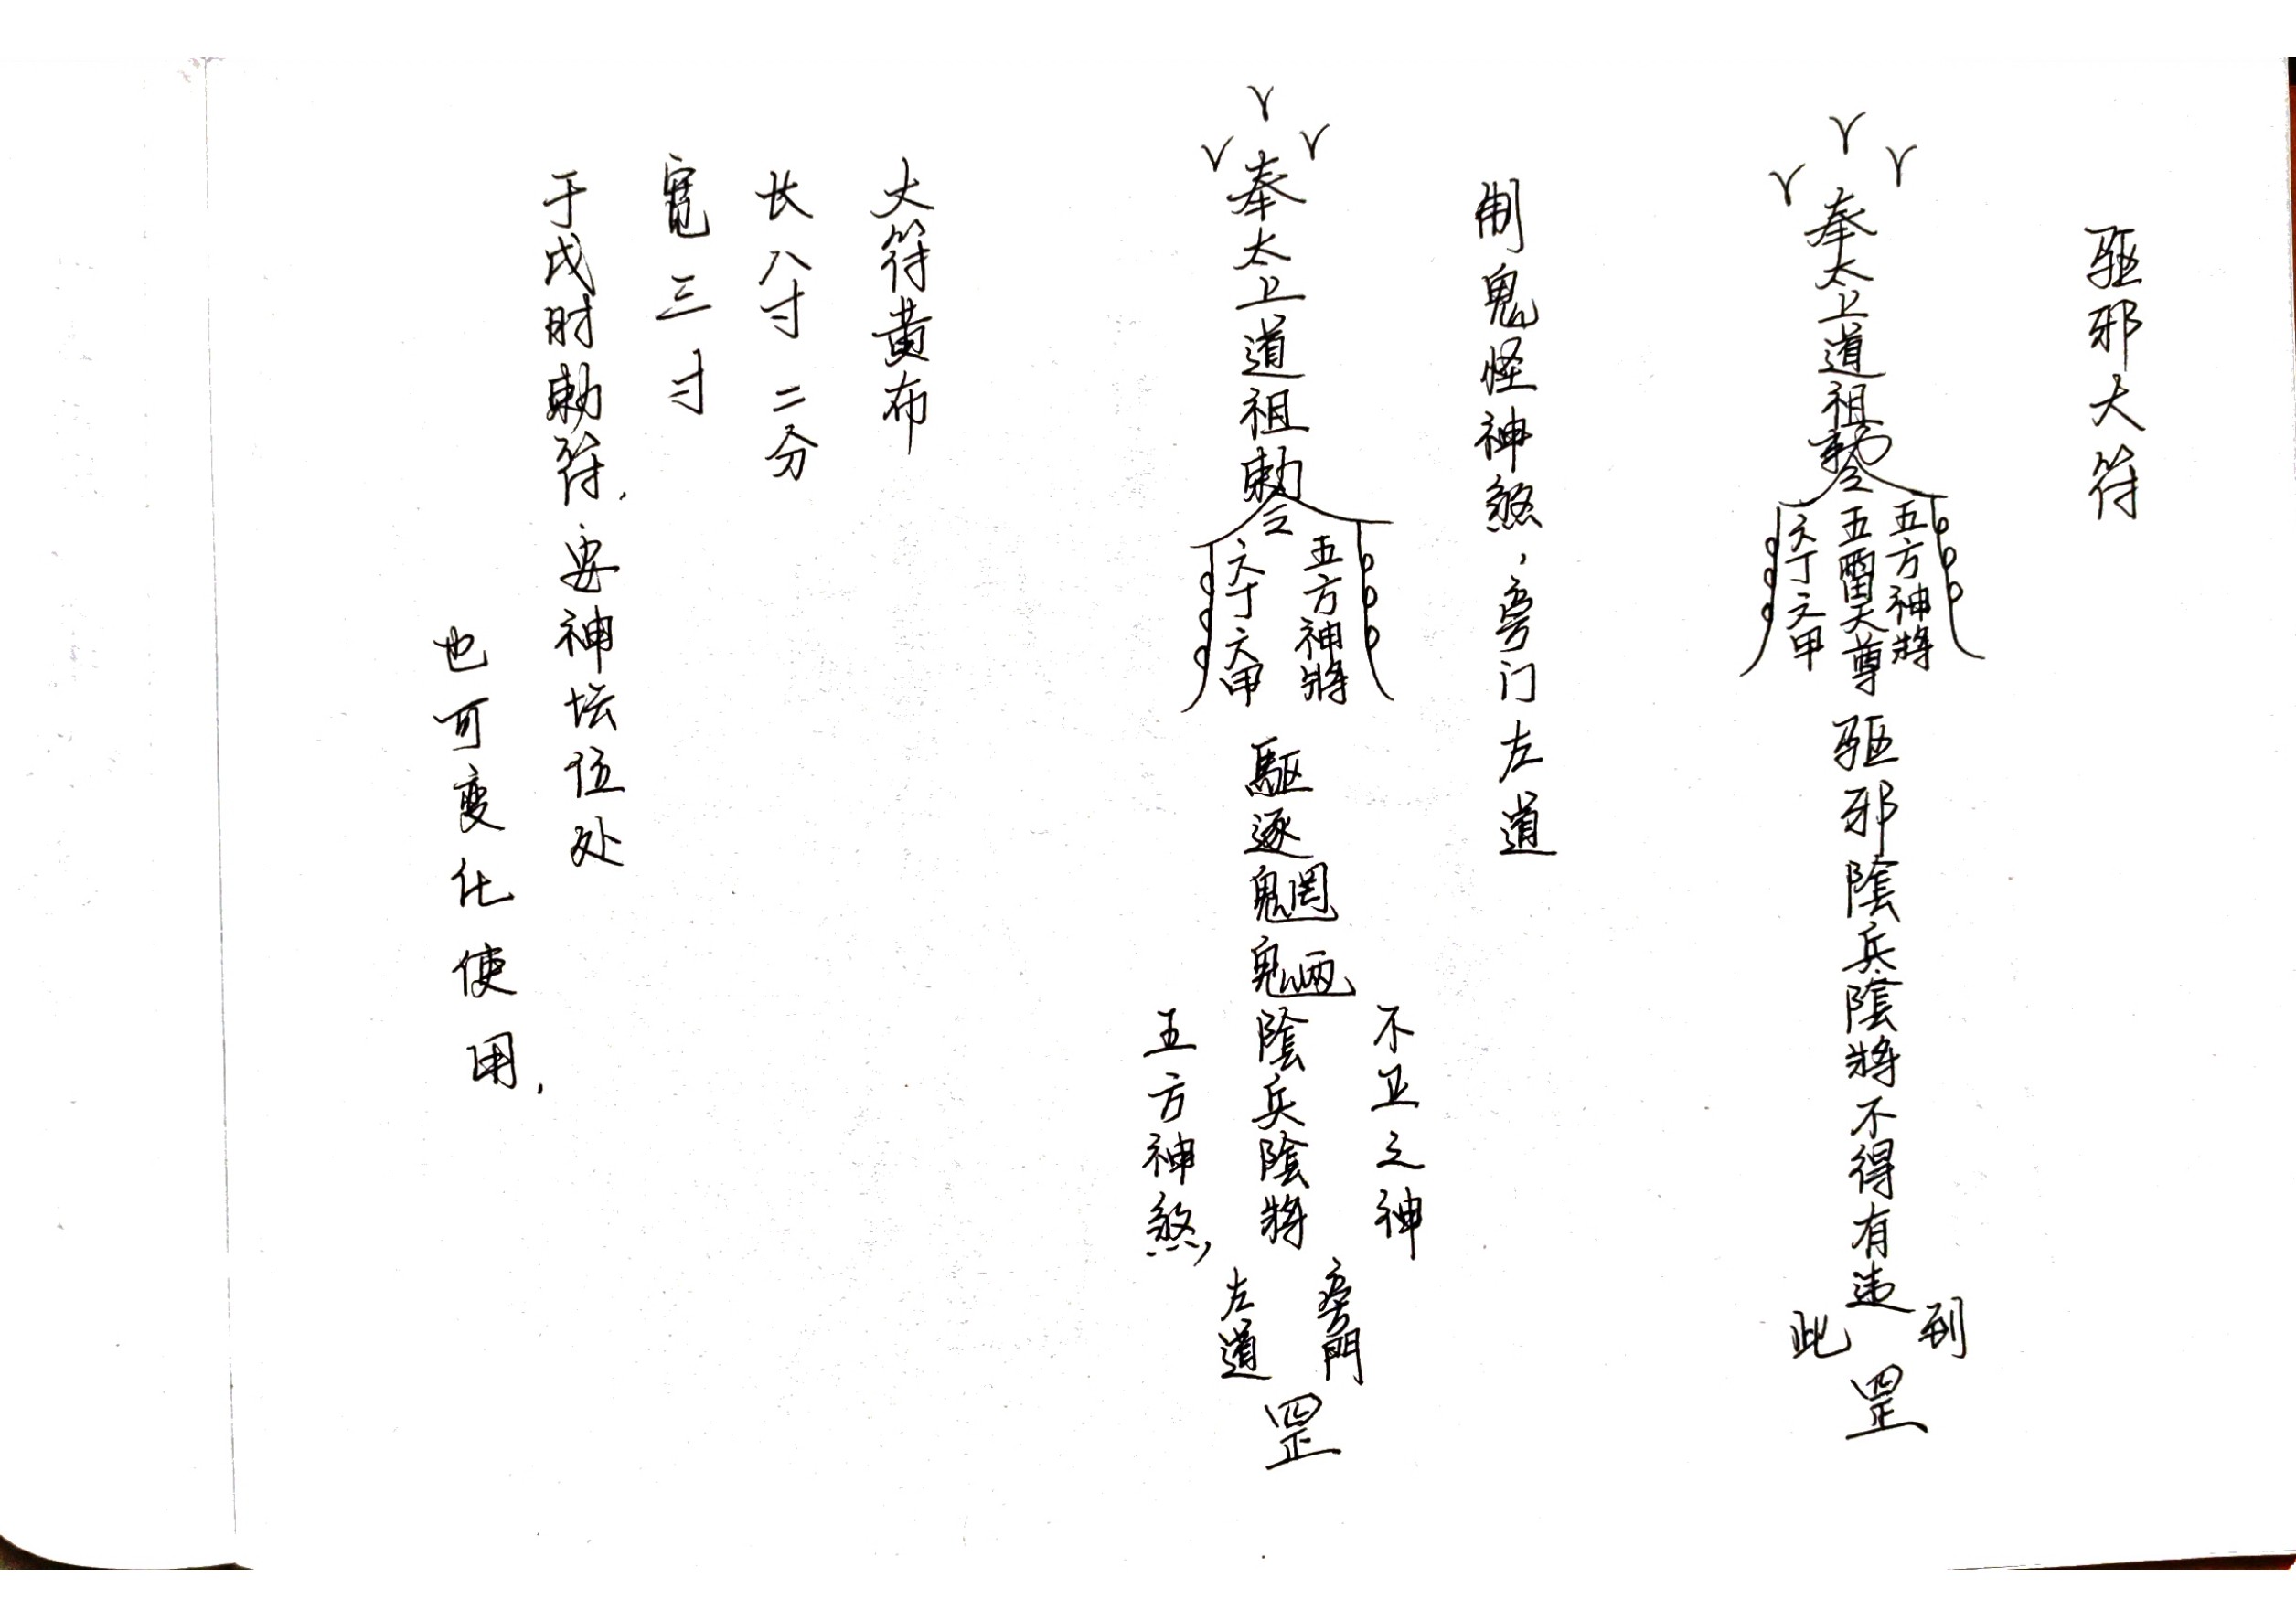 驱邪大符
奉太上道祖勅令
五方神將
五雷天尊
六丁六甲
驱邪陰兵陰將不得有违
到此
罡
制鬼怪神煞，旁门左道
奉太上道祖勅令
五方神將
六丁六甲
驅逐魍魎陰兵陰將
不正之神
五方神煞，
旁門
左道
罡
大符黄布
长八寸二分
寬三寸
于戌时勅符，安神坛位处
也可变化使用，